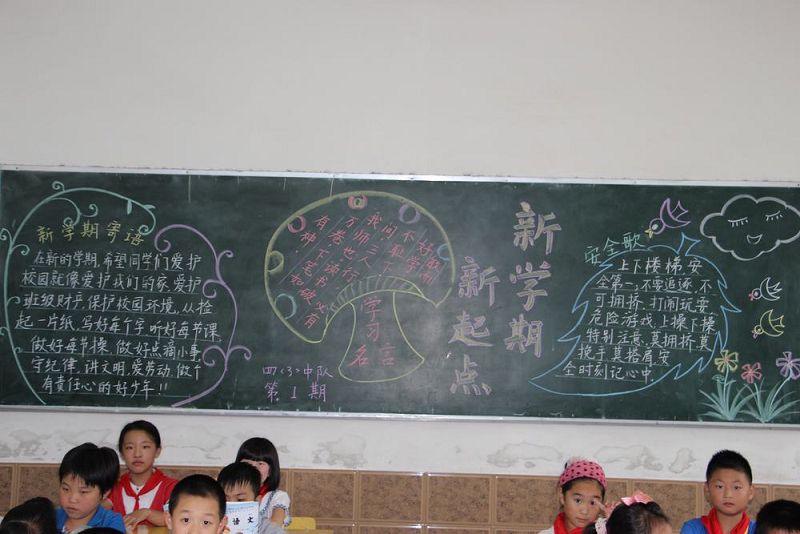 新学期寄语
在新的学期,希望同学们爱护
校园就像爱护我们的家,爱护
班级财产,保护校园环境,从捡
起一片纸,写好每个字,听好每节课,
做好每节操,做好点滴小事,
守纪律,讲文明,爱劳动,做个
有责任心的好少年!!
学习
名言
四〈3〉中队
第1期
新学期
新起点
安全歌
上下楼梯安
全第一,不要追逐,不
可拥挤,打闹玩耍
危险游戏,上操下操
特别注意,莫拥挤,莫
搀手,莫搭肩,安
全时刻记心中.
语文